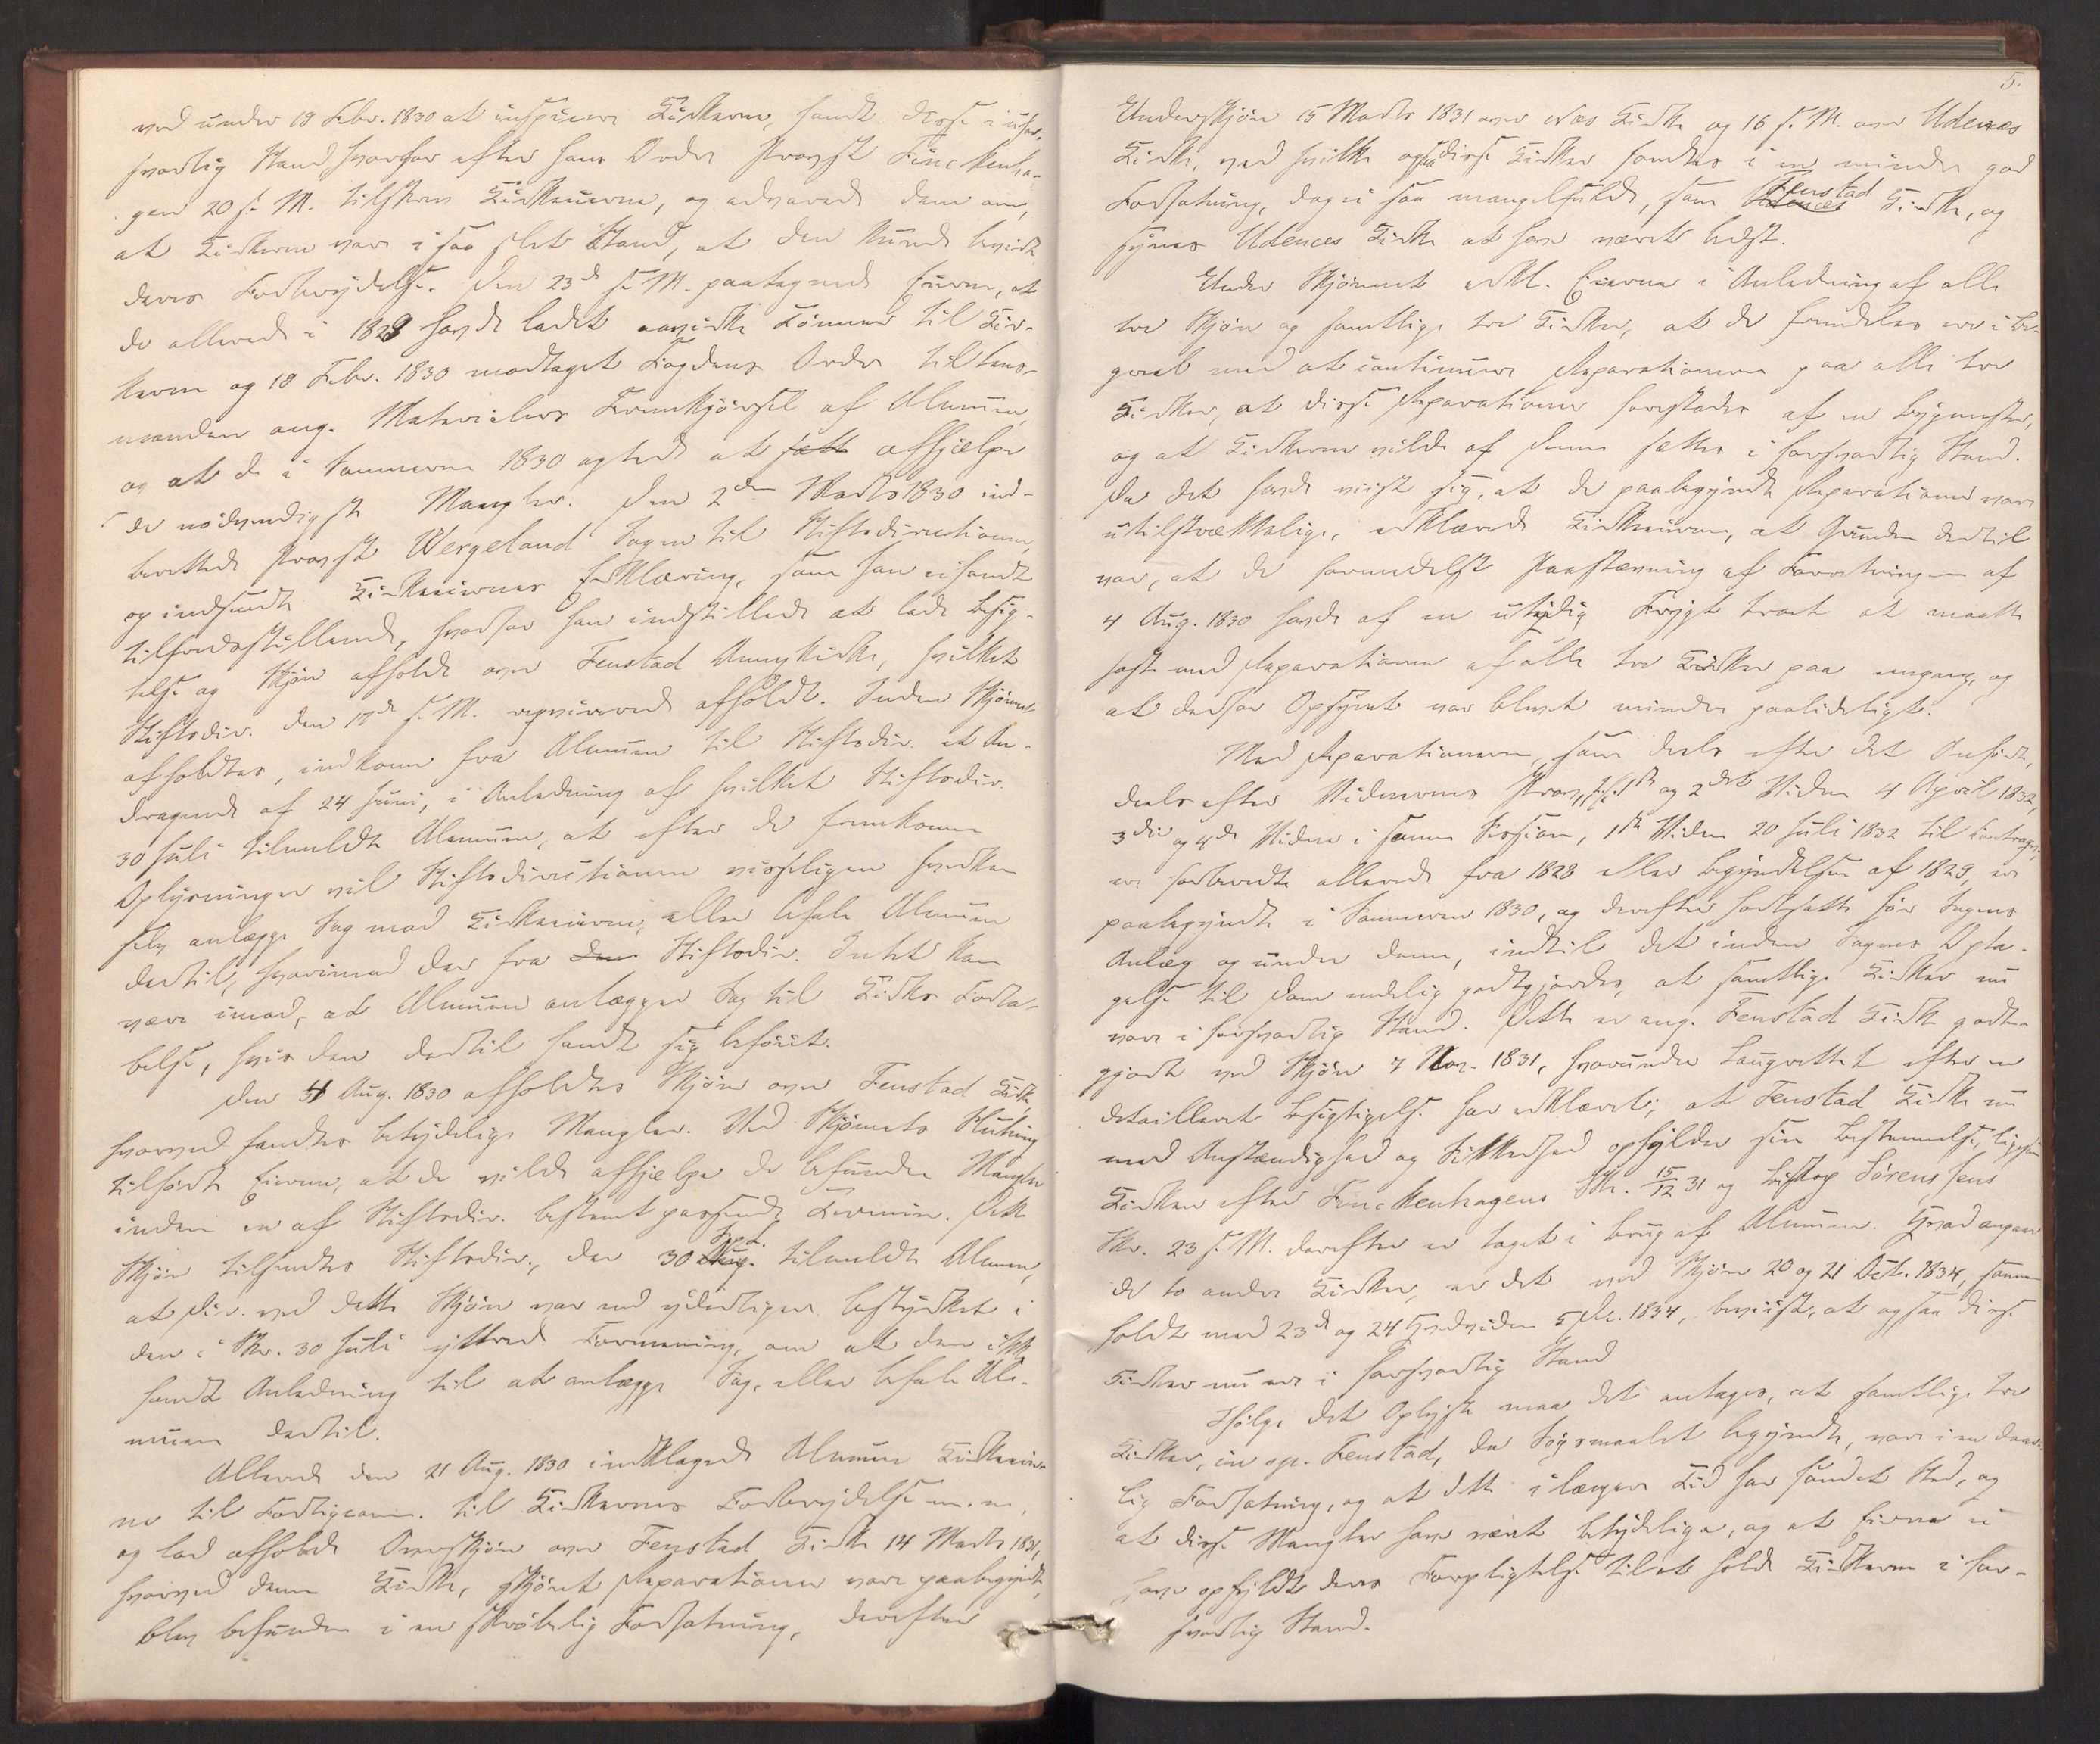 ved under 18 Febr. 1830 at inspicere Kirkerne, fandt disse i ufor-
svarlig Stand hvorfor efter hans Ordre Provst Finckenha-
gen 20 s. M. tilskrev Kirkeeierne, og advarede dem om,
at Kirkerne vare i saa slet Stand, at den kunde bevirke
deres Forbrydelse. Den 23de s. M. paategnede Eierne, at
de allerede i 1828 havde ladet anvirke Tömmer til Kir-
kerne og 18 Febr. 1830 modtaget Fogdens Ordre til Lens-
manden ang. Materialers Fremkjörsel af Almuen,
og at de i Sommeren 1830 agtede at afhjælpe
de nödvendigste Mangler. Den 2den Marts 1830 ind-
berettede Provst Wergeland Sagen til Stiftsdirectionen,
og indsendte Kirkeeiernes Erklæring, som han ei fandt
tilfredsstillende, hvorfor han indstillede at lade Besig-
telse og Skjön afholde over Fenstad Annexkirke, hvilket
Stiftsdir. den 17de s. M. reqvirerede afholdt. Inden Skjönnet
afholdtes, indkom fra Almuen til Stiftsdir. et An-
dragende af 24 Juni, i Anledning af hvilket Stiftsdir.
30 Juli tilmeldte Almuen, at efter de fremkomne
Oplysninger vil Stiftsdirectionen hverken
selv anlægge Sag mod Kirkeeierne, eller befale Almuen
dertil, hvorimod der fra Stiftsdir. Intet kan
være imod, at Almuen anlægger Sag til Kirkes Forta-
belse, hvis den dertil fandt sig beföiet.
Den 31 Aug. 1830 afholdtes Skjön over Fenstad Kirke,
hvorved fandtes betydelige Mangler. Ved Skjönnets Slutning
tilförte Eierne, at de vilde afhjelpe de befundne Mangler
inden en af Stiftsdir. bestemt passende Termin. Dette
Skjön tilsendtes Stiftsdir., der 30 Sept. tilmeldte Almuen,
at Dir. ved dette Skjön var end yderligere bestyrket i
den i Skr. 30 Juli yttrede Formening, om at den ikke
fandt Anledning til at anlægge Sag, eller befale Al-
muen dertil.
Allerede den 21 Aug. 1830 indklagede Almuen Kirkeeier-
ne til Forligscomm. til Kirkernes Forbrydelse m. m.
og lod afholde Overskjön over Fenstad Kirke 14 Marts 1831,
hvorved denne Kirke, skjönt Reparationer vare paabegyndte,
blev befunden i en skröbelig Forfatning, derefter
5.
Underskjön 15 Marts 1831 over Næs Kirke og 16 s. M. over Udenæs
Kirke, ved hvilke ogsaa disse Kirker fandtes i en mindre god
Forfatning, dog ei saa mangelfulde, som Fenstad Kirke, og
synes Udenæs Kirke at have været bedst.
Under Skjönnet erkl. Eierne i Anledning af alle
tre Skjön og samtlige tre Kirker, at de fremdeles ere i Be-
greb med at continuere Reparationerne paa alle tre
Kirker, at disse Reparationer forestodes af en Bygmester,
og at Kirkerne vilde af denne sættes i forsvarlig Stand.
Da det havde viist sig, at de paabegyndte Reparationer vare
utilstrækkelige, erklærede Kirkeeierne, at Grunden dertil
var, at de formedelst Paastævning af Forretningen af
4 Aug. 1830 havde af en utidig Frygt troet at maatte
haste med Reparationen af alle tre Kirker paa engang, og
at derfor Opsynet var blevet mindre paalideligt.
Med Reparationerne, som deels efter det Anförte,
deels efter Vidnernes 1ste og 2det Vidne 4 April 1832,
3die og 4de Vidne i samme Session, 1ste Vidne 20 Juli 1832 til
ere forberedte allerede fra 1828 eller Begyndelsen af 1829, ere
paabegyndte i Sommeren 1830, og derefter fortsatte för Sagens
Anlæg og under denne, indtil det inden Sagens Opta-
gelse til Dom endelig godtgjordes, at samtlige Kirker nu
vare i forsvarlig Stand. Dette er ang. Fenstad Kirke godt-
gjort ved Skjön 7 Nov. 1831, hvorunder Laugrettet efter en
detailleret Besigtigelse har erklæret, at Fenstad Kirke nu
med Anstændighed og Sikkerhed opfylder sin Bestemmelse, ligesom
Kirken efter Finckenhagens Skr. 15/12 31 og Biskop Sörenssens
Skr. 23 s. M. derefter er taget i Brug af Almuen. Hvad angaaer
de to andre Kirker, er det ved Skjön 20 og 21 Oct. 1834, sammen-
holdt med 23de og 24 Hovedvidne 5 Dec. 1834, beviist, at ogsaa disse
Kirker nu ere i forsvarlig Stand
Ifölge det Oplyste maa det antages, at samtlige tre
Kirker, in sp. Fenstad, da Sögsmaalet begyndte, vare i en daar-
lig Forfatning, og at dette i længere Tid har fundet Sted, og
at disse Mangler have været betydelige, og at Eierne ei
have opfyldt deres Forpligtelse til at holde Kirkerne i for-
svarlig Stand.